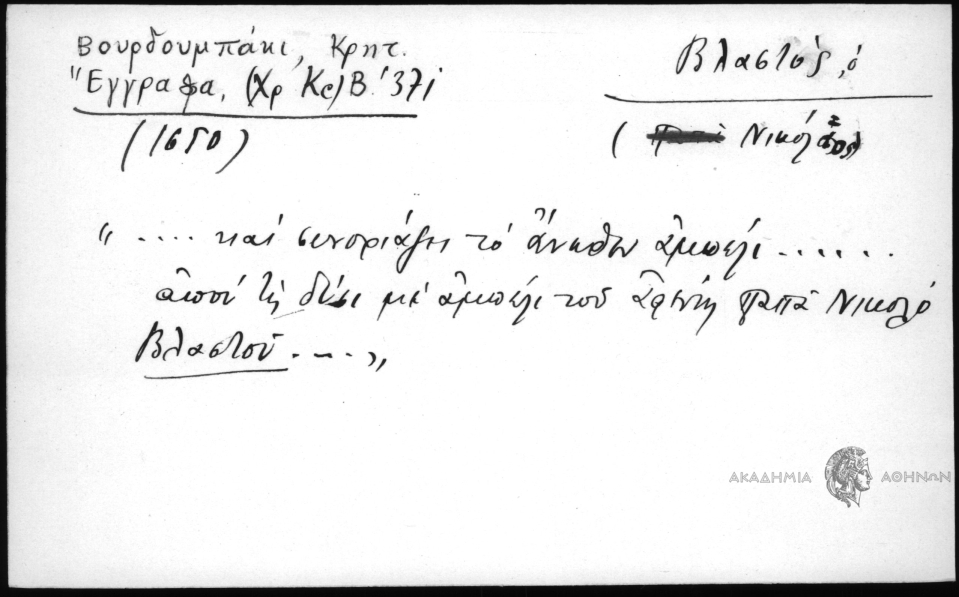 Βουρδουμπάκι, Κρητ.
"Έγγραφα, (Χρ Κς) Β. 371
(1650)
Βλαστός, ὁ
( Νικολ
" .... καί συνοριάζει τό ἄνωθεν ἀμπέλι ......
ἀπού τή δύσι μέ ἀμπέλι τοῦ ἀφέντη παπᾶ Νικολό
Βλαστοῦ ....„
ΑΚΑΔΗΜΙΑ ΑΘΗΝΩΝ